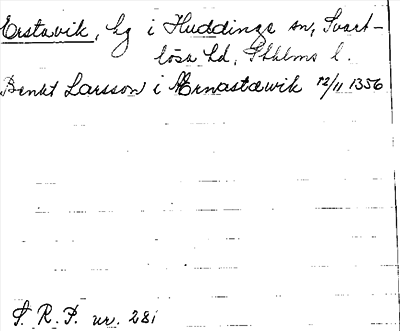 Erstavik, hg i Huddinge sn, Svart-
lösa hd, Sthlms l.
Benkt Larsson i Ærnastawik 12/11 1356
S. R. P. nr. 281